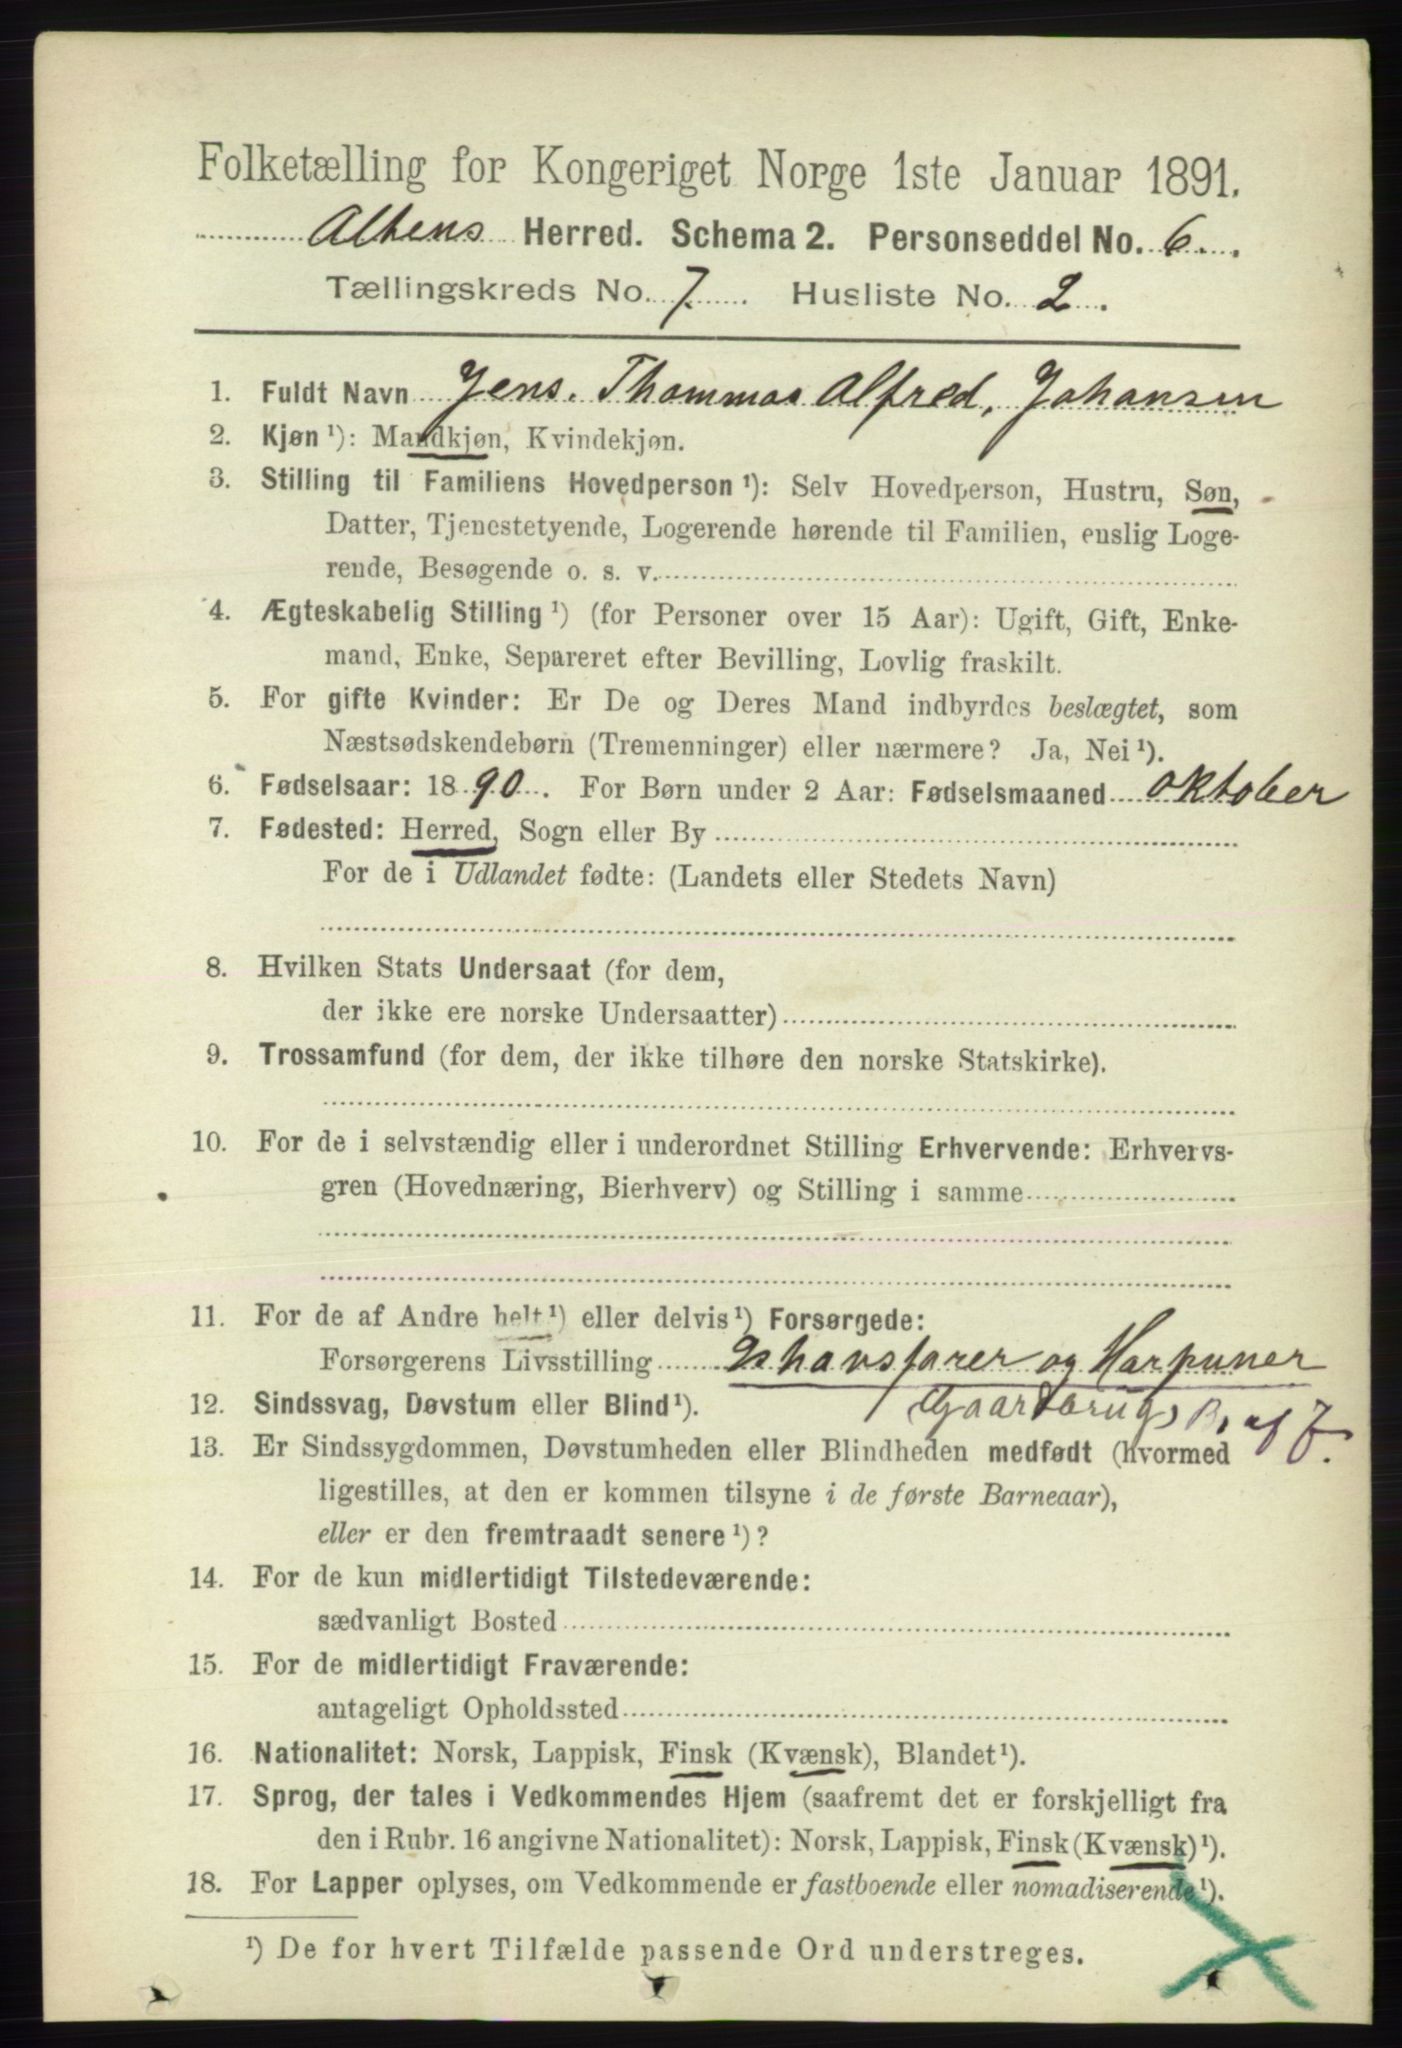 Folketælling for Kongeriget Norge 1ste Januar 1891.
Altens Herred. Schema 2. Personseddel No. 6.
Tællingskreds No. 7. Husliste No. 2.
1. Fuldt Navn Jens. Thommas Alfred, Johansen
2. Kjøn ¹): Mandkjøn, Kvindekjøn.
3. Stilling til Familiens Hovedperson ¹): Selv Hovedperson, Hustru, Søn,
Datter, Tjenestetyende, Logerende hørende til Familien, enslig Loge-
rende, Besøgende o. s. v.
4. Ægteskabelig Stilling ¹) (for Personer over 15 Aar): Ugift, Gift, Enke-
mand, Enke, Separeret efter Bevilling, Lovlig fraskilt.
5. For gifte Kvinder: Er De og Deres Mand indbyrdes beslægtet, som
Næstsødskendebørn (Tremenninger) eller nærmere? Ja, Nei ¹).
6. Fødselsaar: 1890. For Børn under 2 Aar: Fødselsmaaned oktober
7. Fødested: Herred, Sogn eller By
For de i Udlandet fødte: (Landets eller Stedets Navn)
8. Hvilken Stats Undersaat (for dem,
der ikke ere norske Undersaatter)
9. Trossamfund (for dem, der ikke tilhøre den norske Statskirke).
10. For de i selvstændig eller i underordnet Stilling Erhvervende: Erhvervs-
gren (Hovednæring, Bierhverv) og Stilling i samme
11. For de af Andre helt ¹) eller delvis ¹) Forsørgede:
Forsørgerens Livsstilling Ishavsfarer og Harpuner
(Gaardbrug, B, af F.
12. Sindssvag, Døvstum eller Blind ¹).
13. Er Sindssygdommen, Døvstumheden eller Blindheden medfødt (hvormed
ligestilles, at den er kommen tilsyne i de første Barneaar),
eller er den fremtraadt senere ¹)?
14. For de kun midlertidigt Tilstedeværende:
sædvanligt Bosted
15. For de midlertidigt Fraværende:
antageligt Opholdssted
16. Nationalitet: Norsk, Lappisk, Finsk (Kvænsk), Blandet ¹).
17. Sprog, der tales i Vedkommendes Hjem (saafremt det er forskjelligt fra
den i Rubr. 16 angivne Nationalitet): Norsk, Lappisk, Finsk (Kvænsk) ¹).
18. For Lapper oplyses, om Vedkommende er fastboende eller nomadiserende ¹).
¹) De for hvert Tilfælde passende Ord understreges.